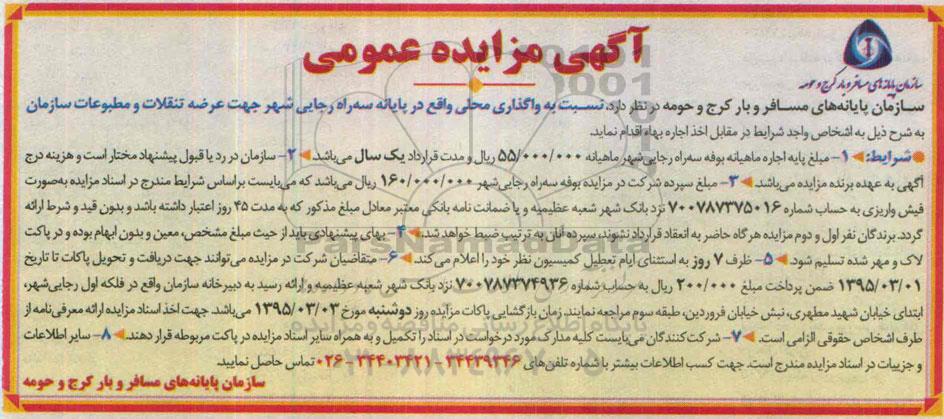 آگهی مزایده عمومی
سازمان پایانه‌های مسافر و بار کرج و حومه
سازمان پایانه‌های مسافر و بار کرج و حومه در نظر دارد، نسبت به واگذاری محلی واقع در پایانه سه‌راه رجایی شهر جهت عرضه تنقلات و مطبوعات سازمان
به شرح ذیل به اشخاص واجد شرایط در مقابل اخذ اجاره بهاء اقدام نماید.
شرایط: ۱- مبلغ پایه اجاره ماهیانه بوفه سه‌راه رجایی‌شهر ماهیانه ۵۵/۰۰۰/۰۰۰ ریال و مدت قرارداد یک سال می‌باشد. ۲- سازمان در رد یا قبول پیشنهاد مختار است و هزینه درج
آگهی به عهده برنده مزایده می‌باشد. ۳- مبلغ سپرده شرکت در مزایده بوفه سه‌راه رجایی‌شهر ۱۶۰/۰۰۰/۰۰۰ ریال می‌باشد که می‌بایست براساس شرایط مندرج در اسناد مزایده به‌صورت
فیش واریزی به حساب شماره ۷۰۰۷۸۷۳۷۵۰۱۶ نزد بانک شهر شعبه عظیمیه و یا ضمانت نامه بانکی معتبر معادل مبلغ مذکور که به مدت ۴۵ روز اعتبار داشته باشد و بدون قید و شرط ارائه
گردد. برندگان نفر اول و دوم مزایده هرگاه حاضر به انعقاد قرارداد نشوند، سپرده آنان به ترتیب ضبط خواهد شد. ۴- بهای پیشنهادی باید از حیث مبلغ مشخص، معین و بدون ابهام بوده و در پاکت
لاک و مهر شده تسلیم شود. ۵- ظرف ۷ روز به استثنای ایام تعطیل کمیسیون نظر خود را اعلام می‌کند. ۶- متقاضیان شرکت در مزایده می‌توانند جهت دریافت و تحویل پاکات تا تاریخ
۱۳۹۵/۰۳/۰۱ ضمن پرداخت مبلغ ۲۰۰/۰۰۰ ریال به حساب شماره ۷۰۰۷۸۷۳۷۴۹۳۶ نزد بانک شهر شعبه عظیمیه و ارائه رسید به دبیرخانه سازمان واقع در فلکه اول رجایی‌شهر،
ابتدای خیابان شهید مطهری، نبش خیابان فروردین، طبقه سوم مراجعه نمایند. زمان بازگشایی پاکات مزایده روز دوشنبه مورخ ۱۳۹۵/۰۳/۰۳ می‌باشد. جهت اخذ اسناد مزایده ارائه معرفی‌نامه از
طرف اشخاص حقوقی الزامی است. ۷- شرکت‌کنندگان می‌بایست کلیه مدارک مورد درخواست در اسناد را تکمیل و به همراه سایر اسناد مزایده در پاکت مربوطه قرار دهند. ۸- سایر اطلاعات
و جزییات در اسناد مزایده مندرج است. جهت کسب اطلاعات بیشتر با شماره تلفن‌های ۳۴۴۳۹۳۴۶ - ۳۴۴۰۳۴۲۱-۰۲۶ تماس حاصل نمایید.
سازمان پایانه‌های مسافر و بار کرج و حومه
ParsNamadData